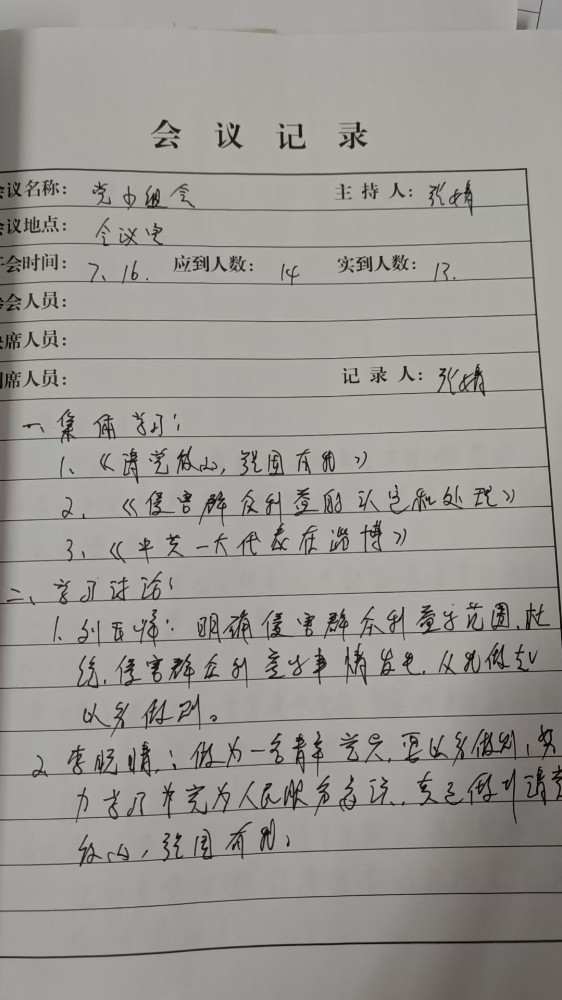 会议记录
会议名称: 党小组会 主持人: 张婧
会议地点: 会议室
开会时间: 7、16. 应到人数: 14 实到人数: 13.
参会人员:
缺席人员:
列席人员: 记录人: 张婧
一、集体学习:
1、《请党放心,强国有我》
2、《侵害群众利益的认定和处理》
3、《中共一大代表在淄博》
二、学习讨论:
1、刘 : 明确侵害群众利益的范围,杜
绝,侵害群众利益的事情发生,从我做起
以身作则。
2、李晓晴:做为一名青年党员,要以身做则,努
力学习 为人民服务 ,真正做到请党
放心,强国有我。